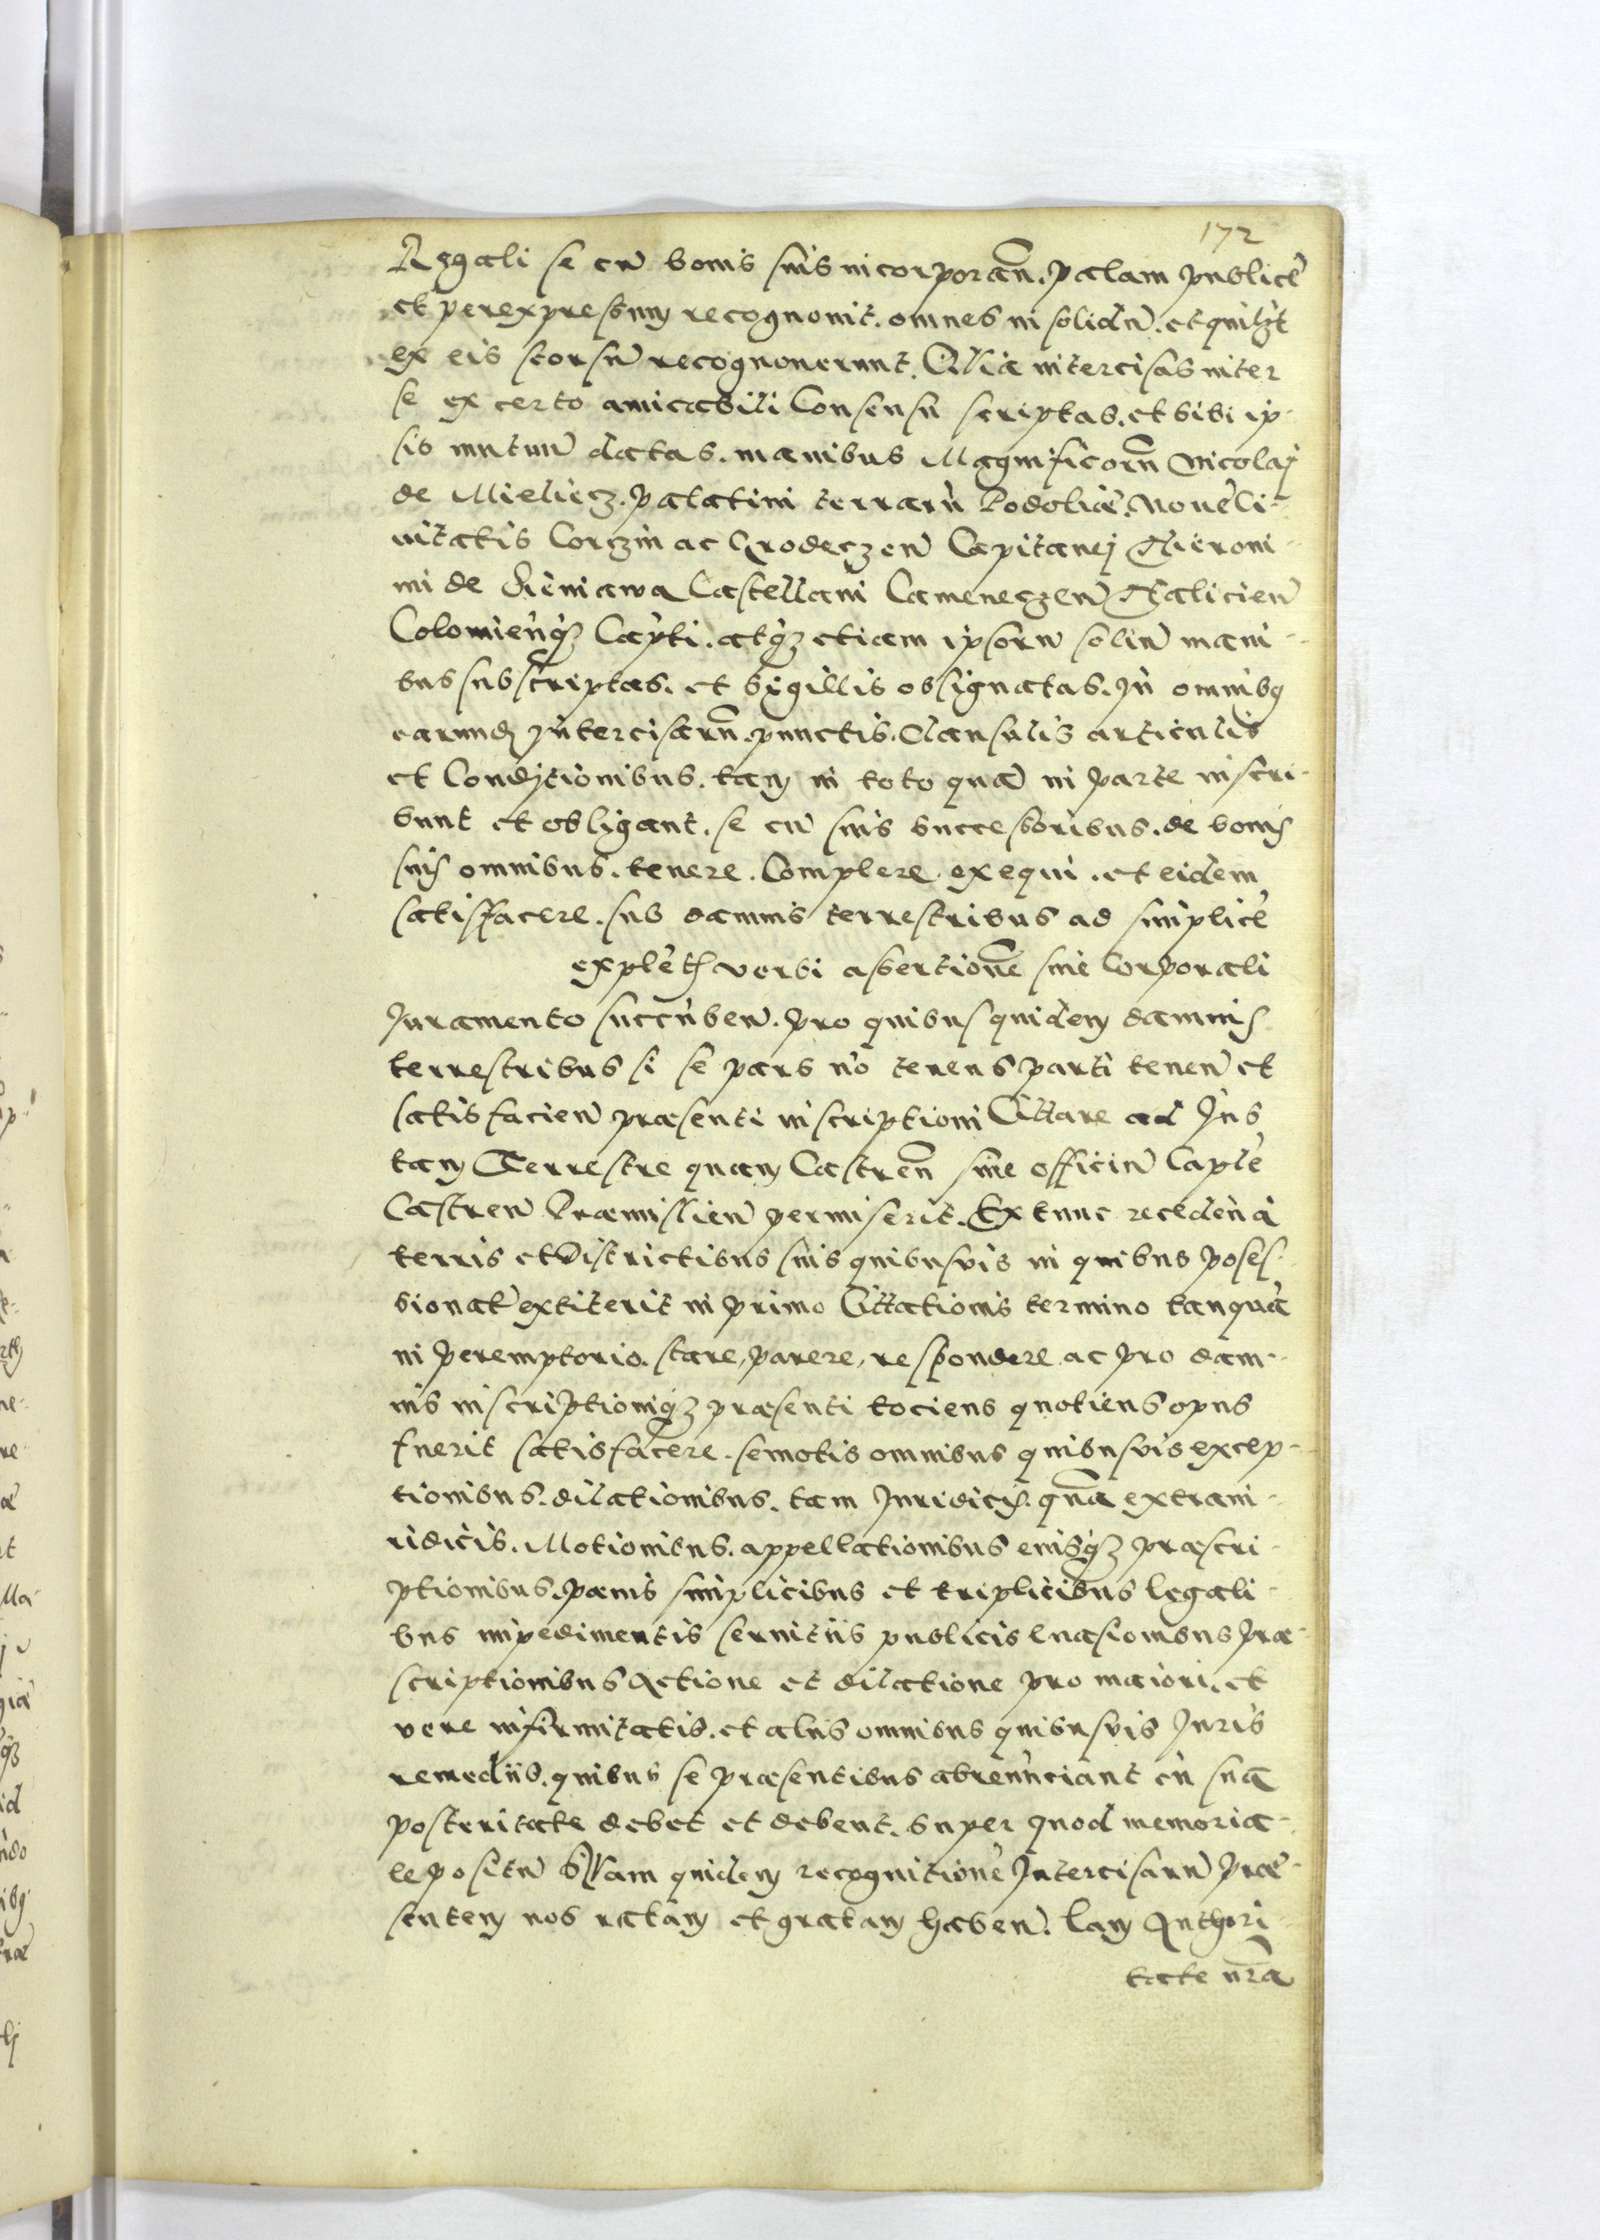 172
Regali se cũ bonis suis incorporañ. palam publicè
et per expressum recognovit. omnes in solidũ. et quilibt
ex eis seorsũ recognoverunt. Quia intercisas inter
se ex certo amicabili Consensu scriptas. et sibi ip-
sis mutuũ datas. manibus Magnificorũ Nicolaj
de Mieliecz. palatini terrarũ Podoliæ. Novè Ci-
vitatis Corczin ac Grodeczeñ Capitanej Hieroni-
mi de Sieniawa Castellani Cameneczeñ Halicieñ
Colomieñq3 Capti. atq3 etiam ipsorũ solũ mani-
bus subscriptas. et sigillis obsignatas. In omnibq
earund intercisarũ. punctis. Clausulis articulis
et Conditionibus. tam in toto quã in parte inscri-
bunt et obligant. se cũ suis successoribus. de bonis
suis omnibus. tenere. Complere. exequi. et eidem
satisfacere. sub damnis terrestribus ad simplicẽ
explẽt verbi assertionẽ sine Corporali
Iuramento succũbeñ. pro quibus quidem damnis
terrestribus si se pars nõ tenens parti teneñ et
satisfacieñ præsenti inscriptioni Cittare ad Ius
tam Terrestre quam Castreñ siue officiũ Caplẽ
Castreñ Præmislieñ permiserit. Ex tunc recedeñ à
terris et Districtibus suis quibusvis in quibus poses-
sionat extiterit in primo Cittationis termino tanquã
in peremptorio. stare, parere, respondere ac pro dam-
nis inscriptioniq3 præsenti tociens quotiens opus
fuerit satisfacere. semotis omnibus quibusvis excep-
tionibus. dilationibus. tam Iuridicis. quã extraiu-
ridicis. Motionibus. appellationibus eiusq3 præscri-
ptionibus. pænis simplicibus et triplicibus legali-
bus impedimentis servitiis publicis evasionibus præ-
scriptionibus actione et dilatione pro maiori. et
vere infirmitatis. et aliis omnibus quibusvis Iuris
remediis. quibus se præsentibus abrenũciant cũ sua
posteritate debet et debent. super quod memoria-
le positũ Qvam quidem recognitionẽ Intercisarũ præ-
sentem nos ratam et gratam habeñ. Eam Authori-
tate nrã